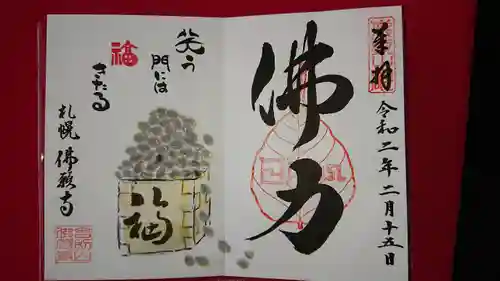 奉拝
令和二年二月十五日
佛力
笑う
門には
福
きたる
福
札幌 佛願寺